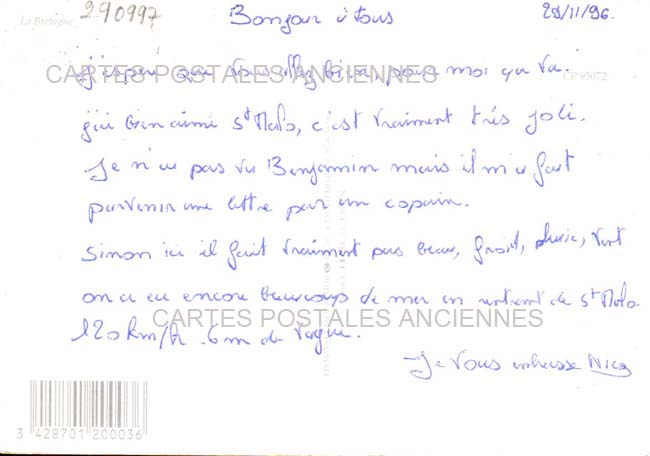 La Bretagne
290997
Bonjour à tous
29/11/96.
j'espère que vous allez bien, pour moi ça va.
CARTES POSTALES ANCIENNES
CP 95072
j'ai bien aimé St Malo, c'est vraiment très joli.
Je n'ai pas vu Benjamin mais il m'a fait
parvenir une lettre par un copain.
Sinon ici il fait vraiment pas beau, froid, pluie, vent
on a eu encore beaucoup de mer en rentrant de St Malo.
CARTES POSTALES ANCIENNES
120 km/h. 6m de vague.
Je vous embrasse Nico
3 428701 200036